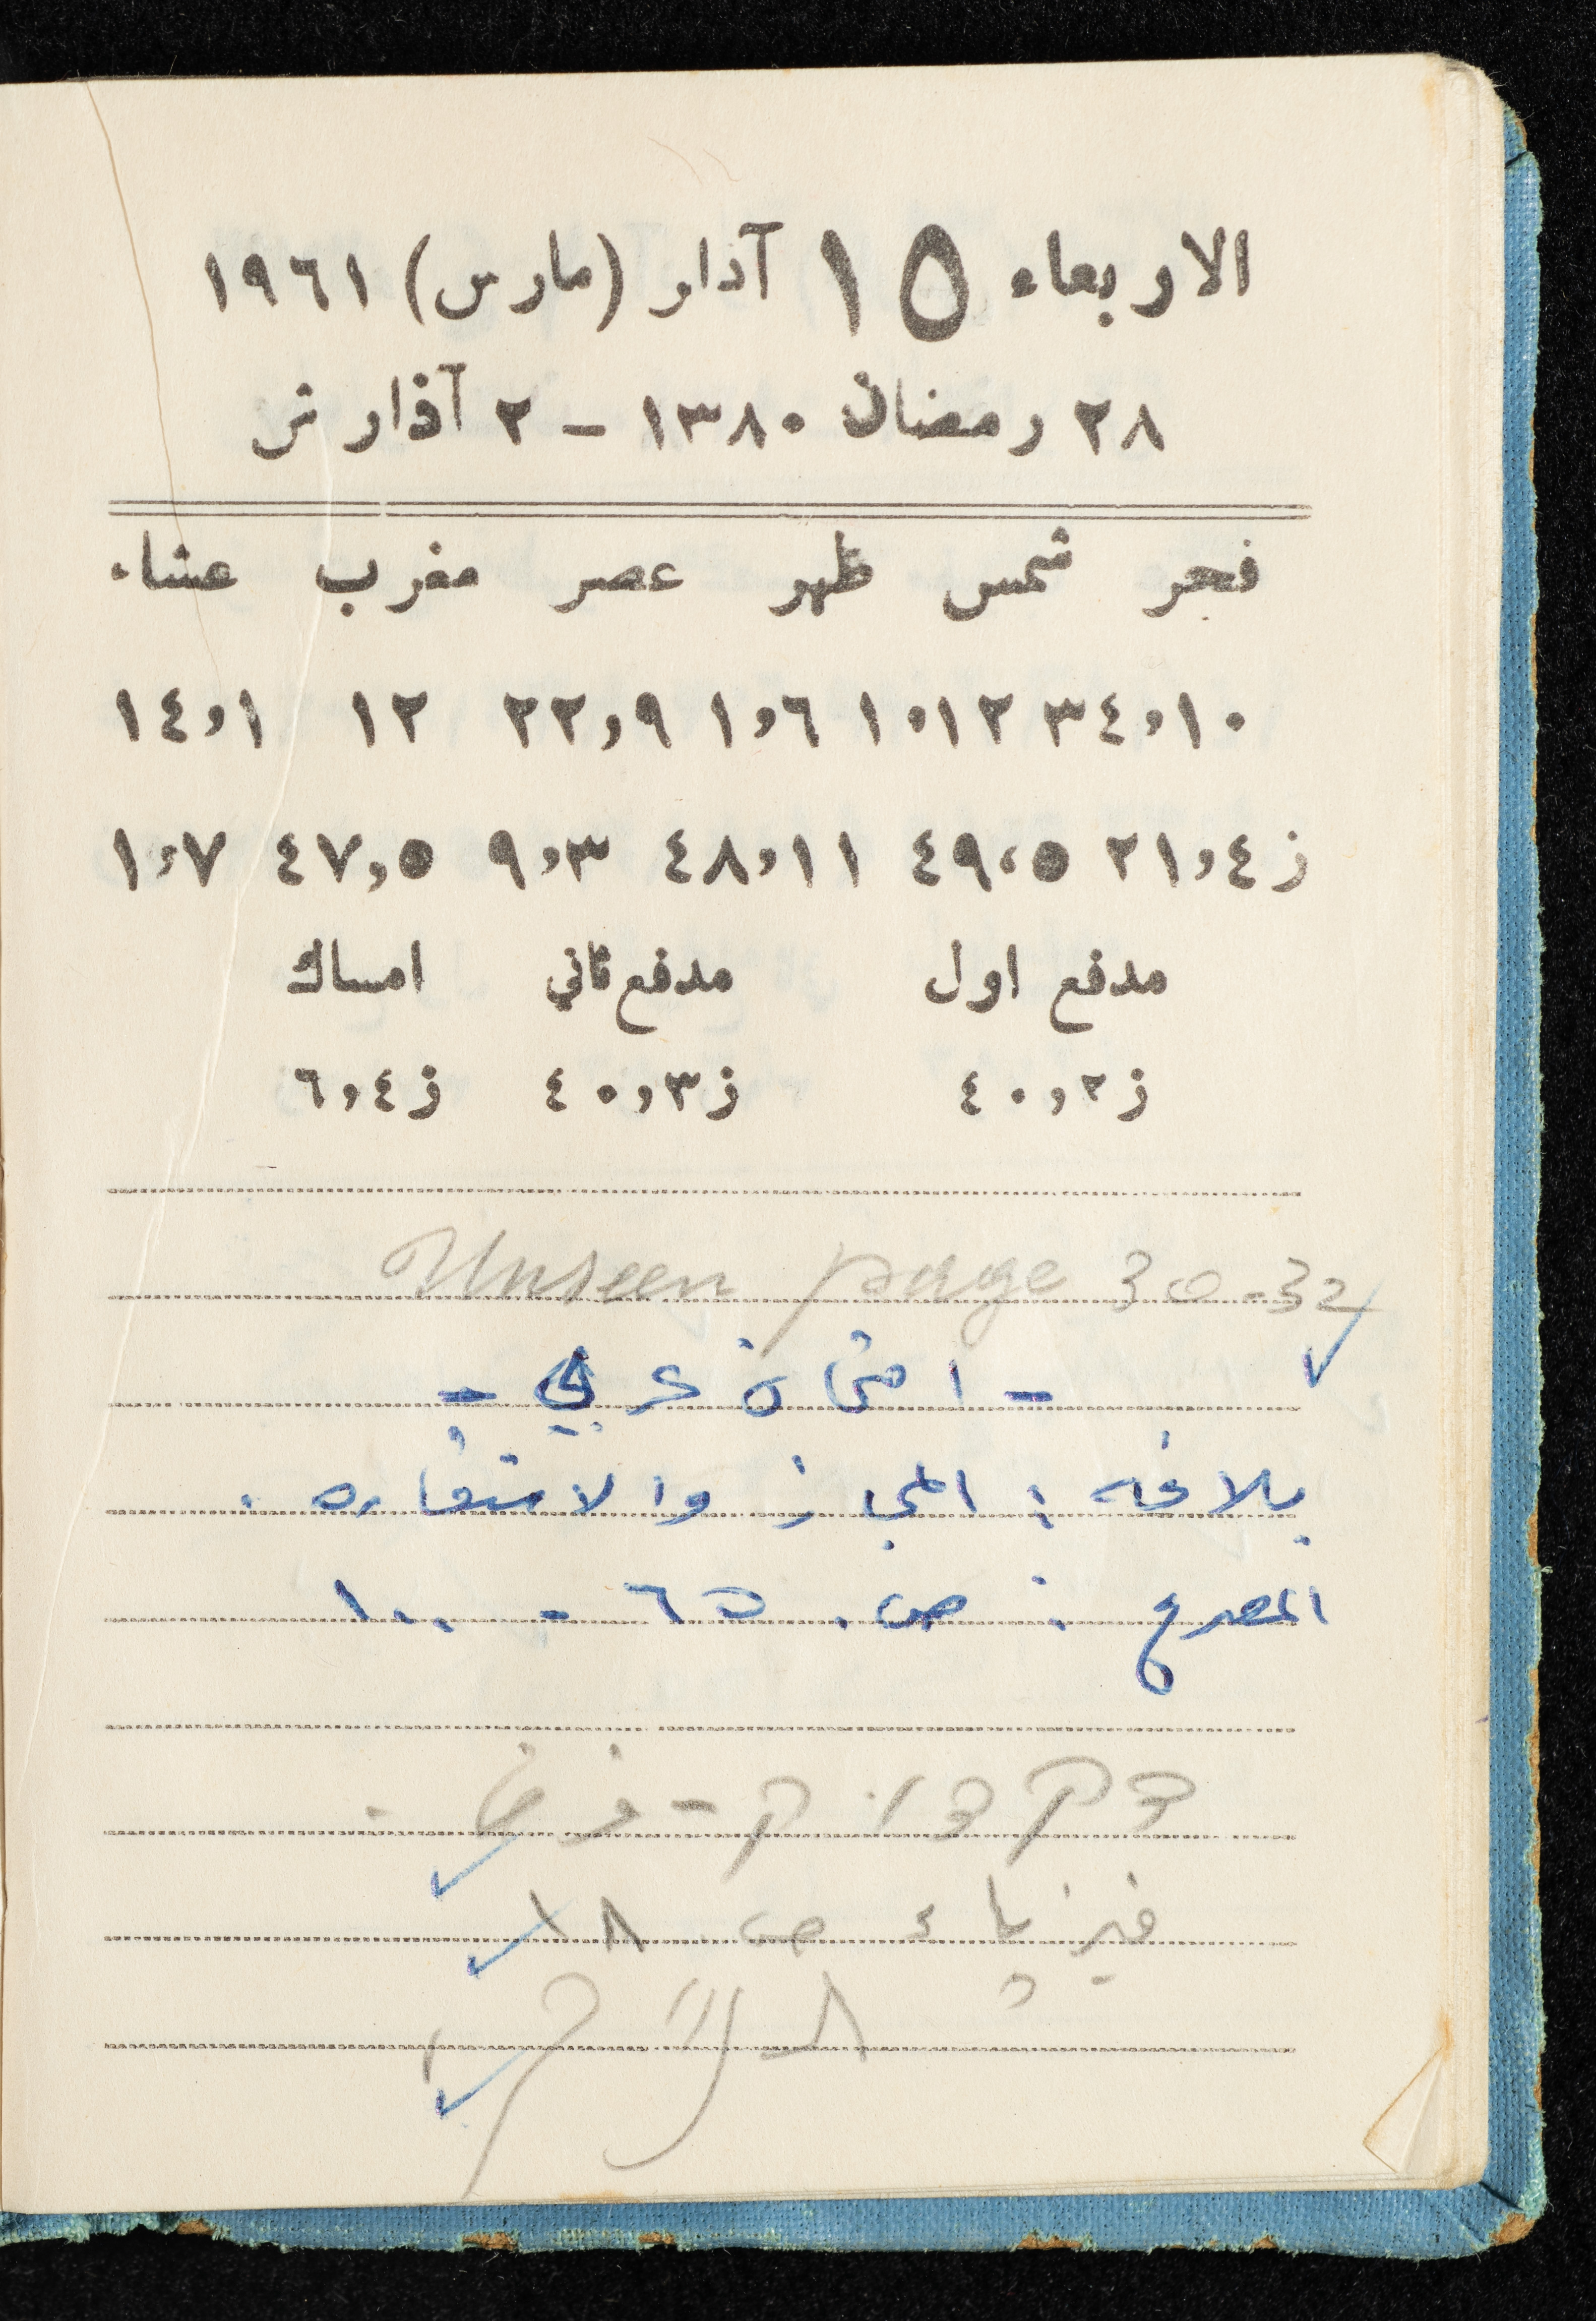 الاربعاء ١٥ آذار (مارس) ١٩٦١
٢٨ رمضان ١٣٨٠ - ٢ آذار ش
فجر شمس ظهر عصر مغرب عشاء
٣٤,١٠ ١٠١٢ ١,٦ ٢٢,٩ ١٢ ١٤,١
ز ٢١,٤ ٤٩,٥ ٤٨,١١ ٩,٣ ٤٧,٥ ١,٧
مدفع اول مدفع ثاني امساك
ز ٤٠,٢ ز ٤٠,٣ ز ٦,٤
Unseen page 30-32
- امتحان عربي -
بلاغه : المجاز والاستعاره .
المصرع : ص. ٦٥ - ١٠٠
فيزياء ص. ١٨